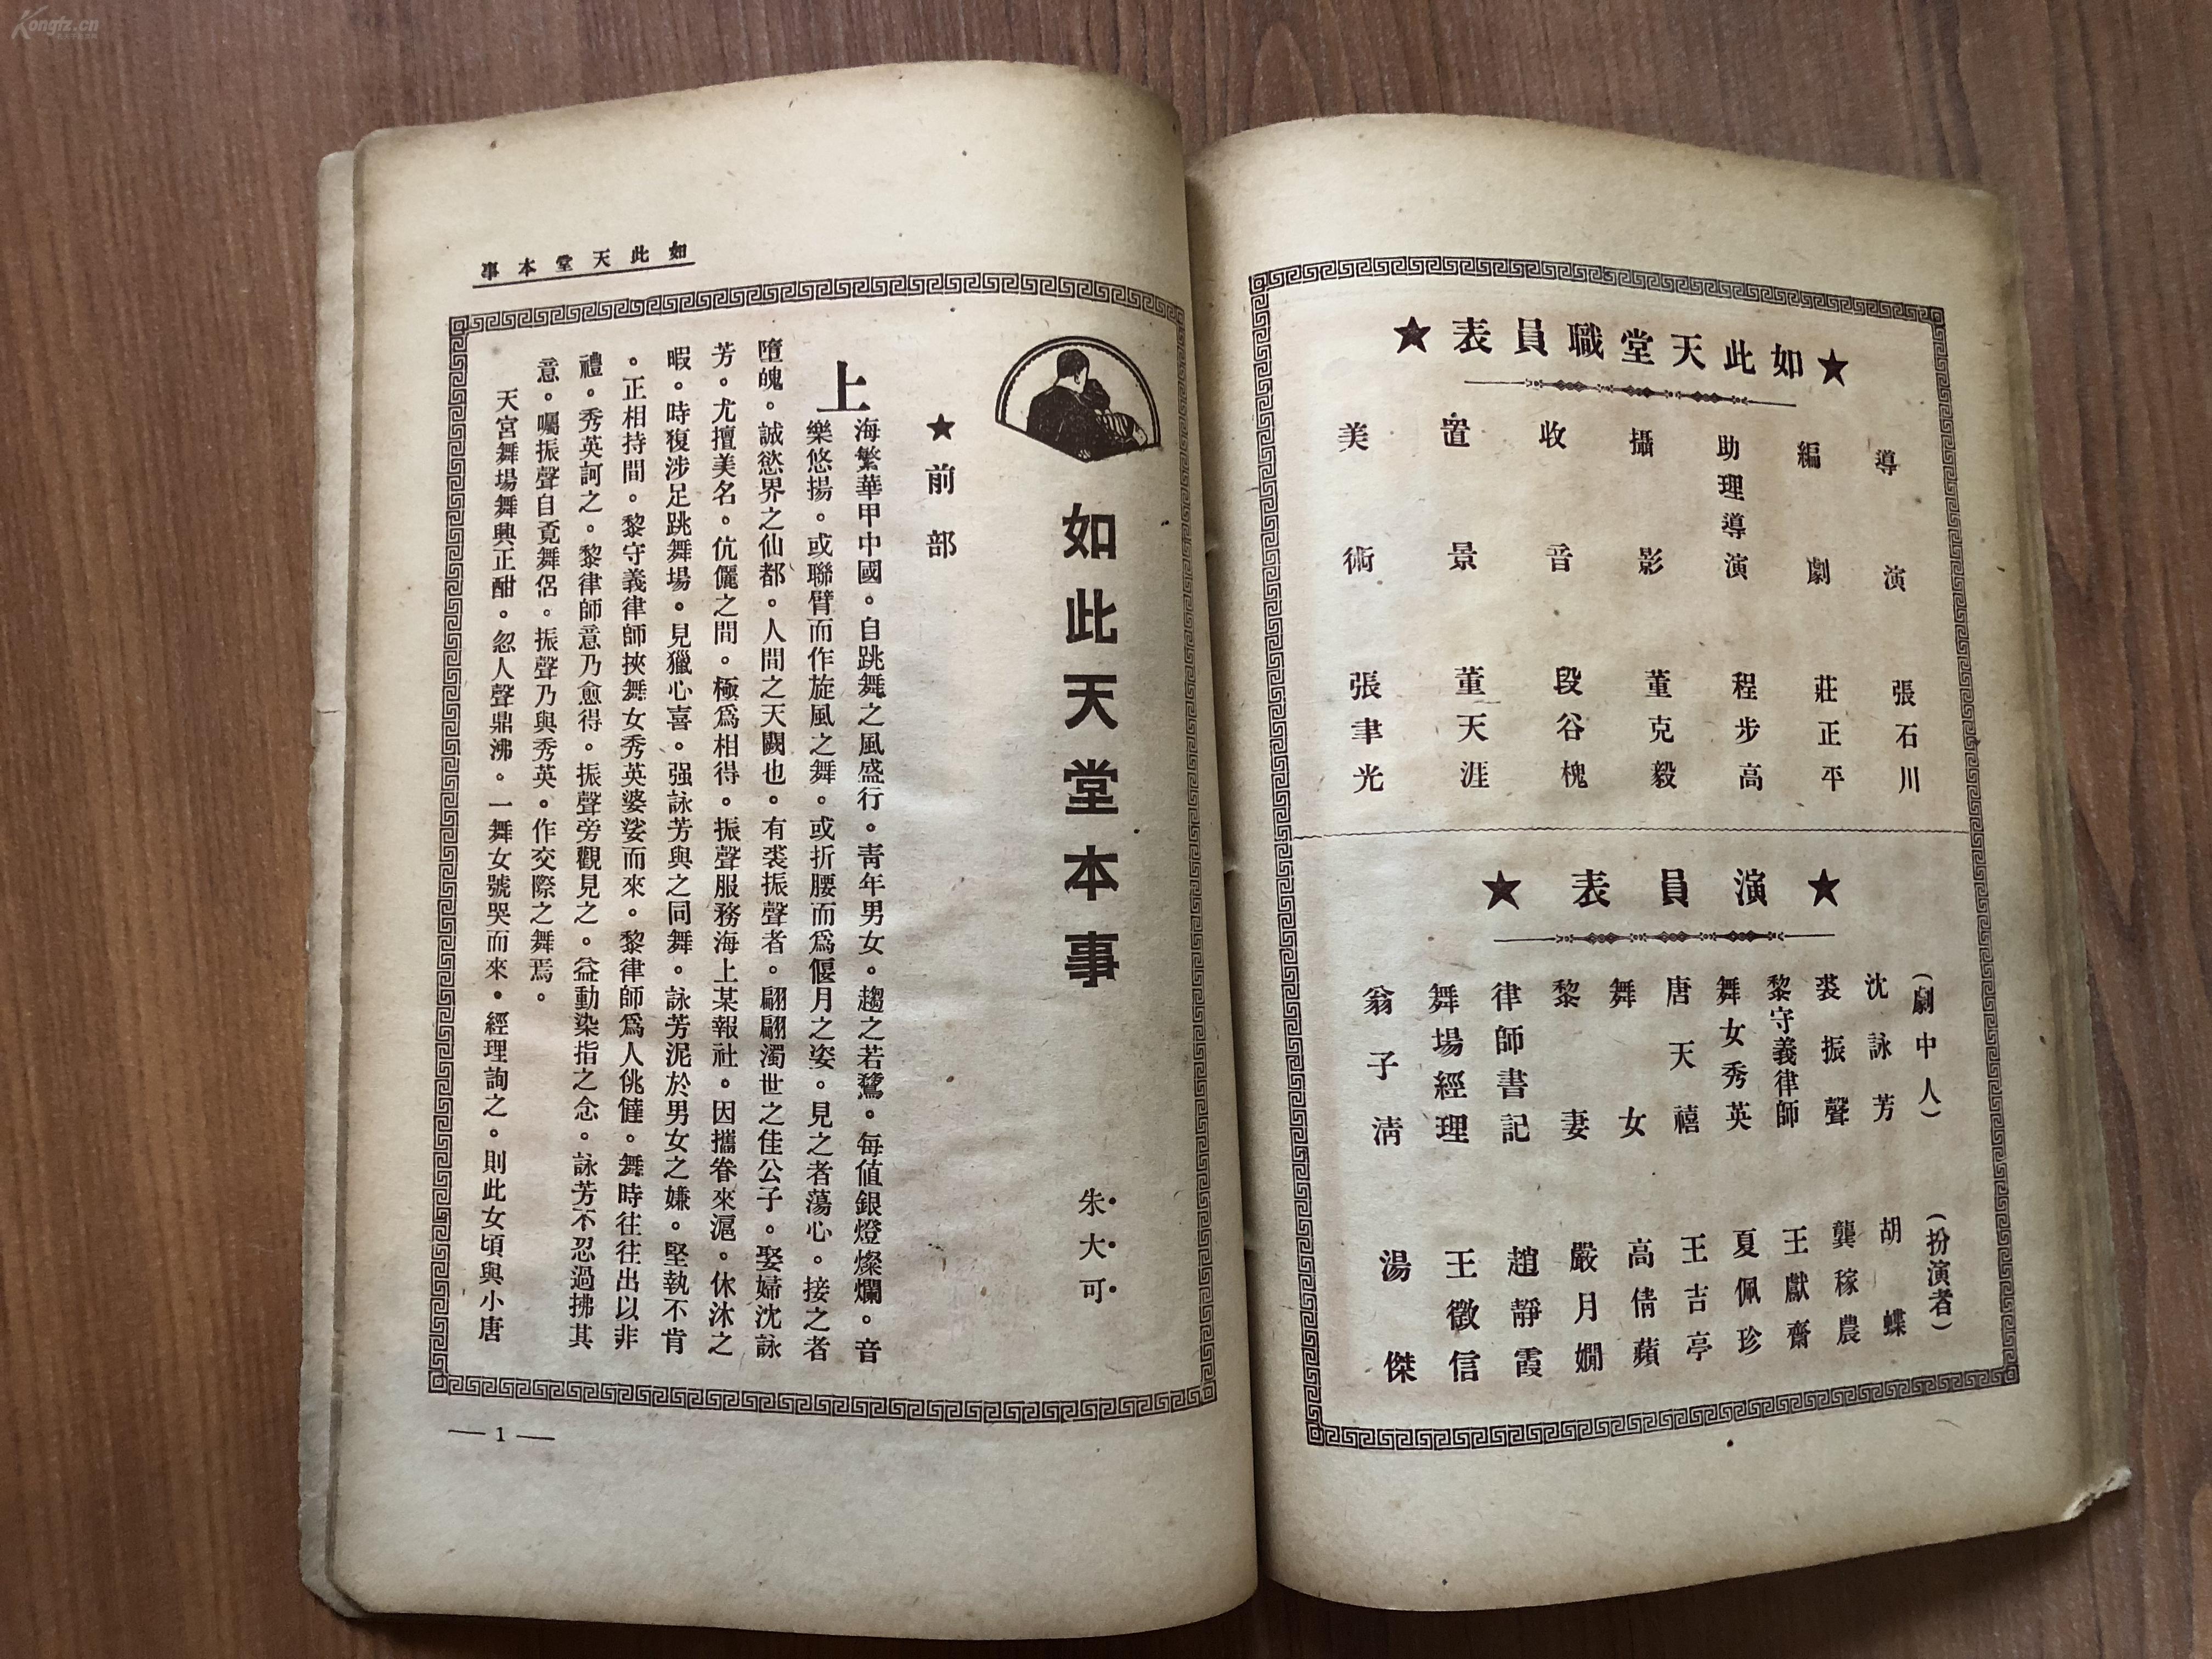 ★如此天堂職員表★
導演 張石川
編劇 莊正平
助理導演 程步高
攝影 董克毅
收音 段谷槐
置景 董天涯
美術 張聿光
★演員表★
（劇中人）（扮演者）
沈詠芳 胡蝶
裘振聲 龔稼農
黎守義律師 王獻齋
舞女秀英 夏佩珍
唐天禧 王吉亭
舞女 高倩蘋
黎妻 嚴月嫻
律師書記 趙靜霞
舞場經理 王徵信
翁子清 湯傑
如此天堂本事
如此天堂本事
朱大可
★前部
上海繁華甲中國。自跳舞之風盛行。青年男女。趨之若鶩。每值銀燈燦爛。音
樂悠揚。或聯臂而作旋風之舞。或折腰而爲偃月之姿。見之者蕩心。接之者
墮魄。誠慾界之仙都。人間之天闕也。有裘振聲者。翩翩濁世之佳公子。娶婦沈詠
芳。尤擅美名。伉儷之間。極爲相得。振聲服務海上某報社。因攜眷來滬。休沐之
暇。時復涉足跳舞場。見獵心喜。强詠芳與之同舞。詠芳泥於男女之嫌。堅執不肯
。正相持間。黎守義律師挾舞女秀英婆娑而來。黎律師爲人佻㒓。舞時往往出以非
禮。秀英訶之。黎律師意乃愈得。振聲旁觀見之。益動染指之念。詠芳不忍過拂其
意。囑振聲自覓舞侶。振聲乃與秀英。作交際之舞焉。
天宮舞場舞興正酣。忽人聲鼎沸。一舞女號哭而來。經理詢之。則此女頃與小唐
— 1 —
Kongfz.cn